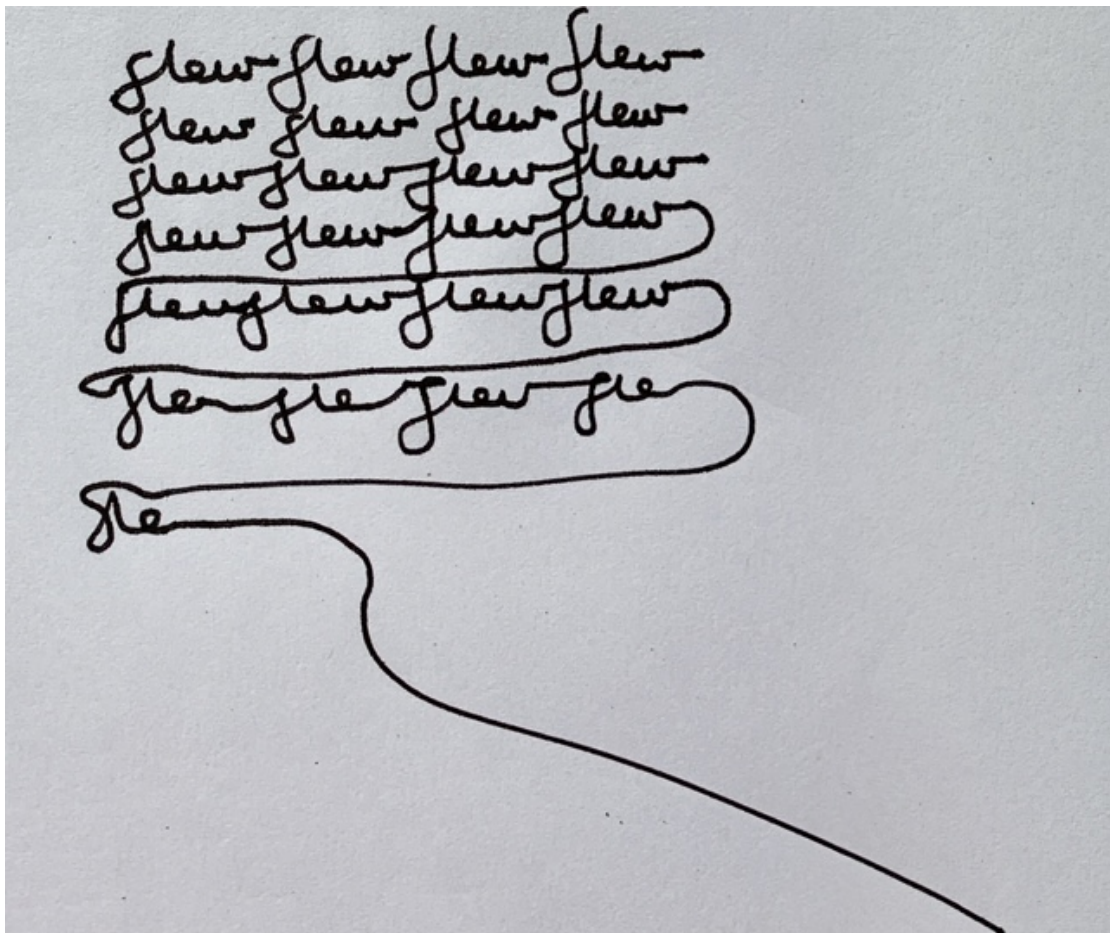 flew flew flew flew
flew flew flew flew
flew flew flew flew
flew flew flew flew
flew flew flew flew
fle fle flew fle
fle